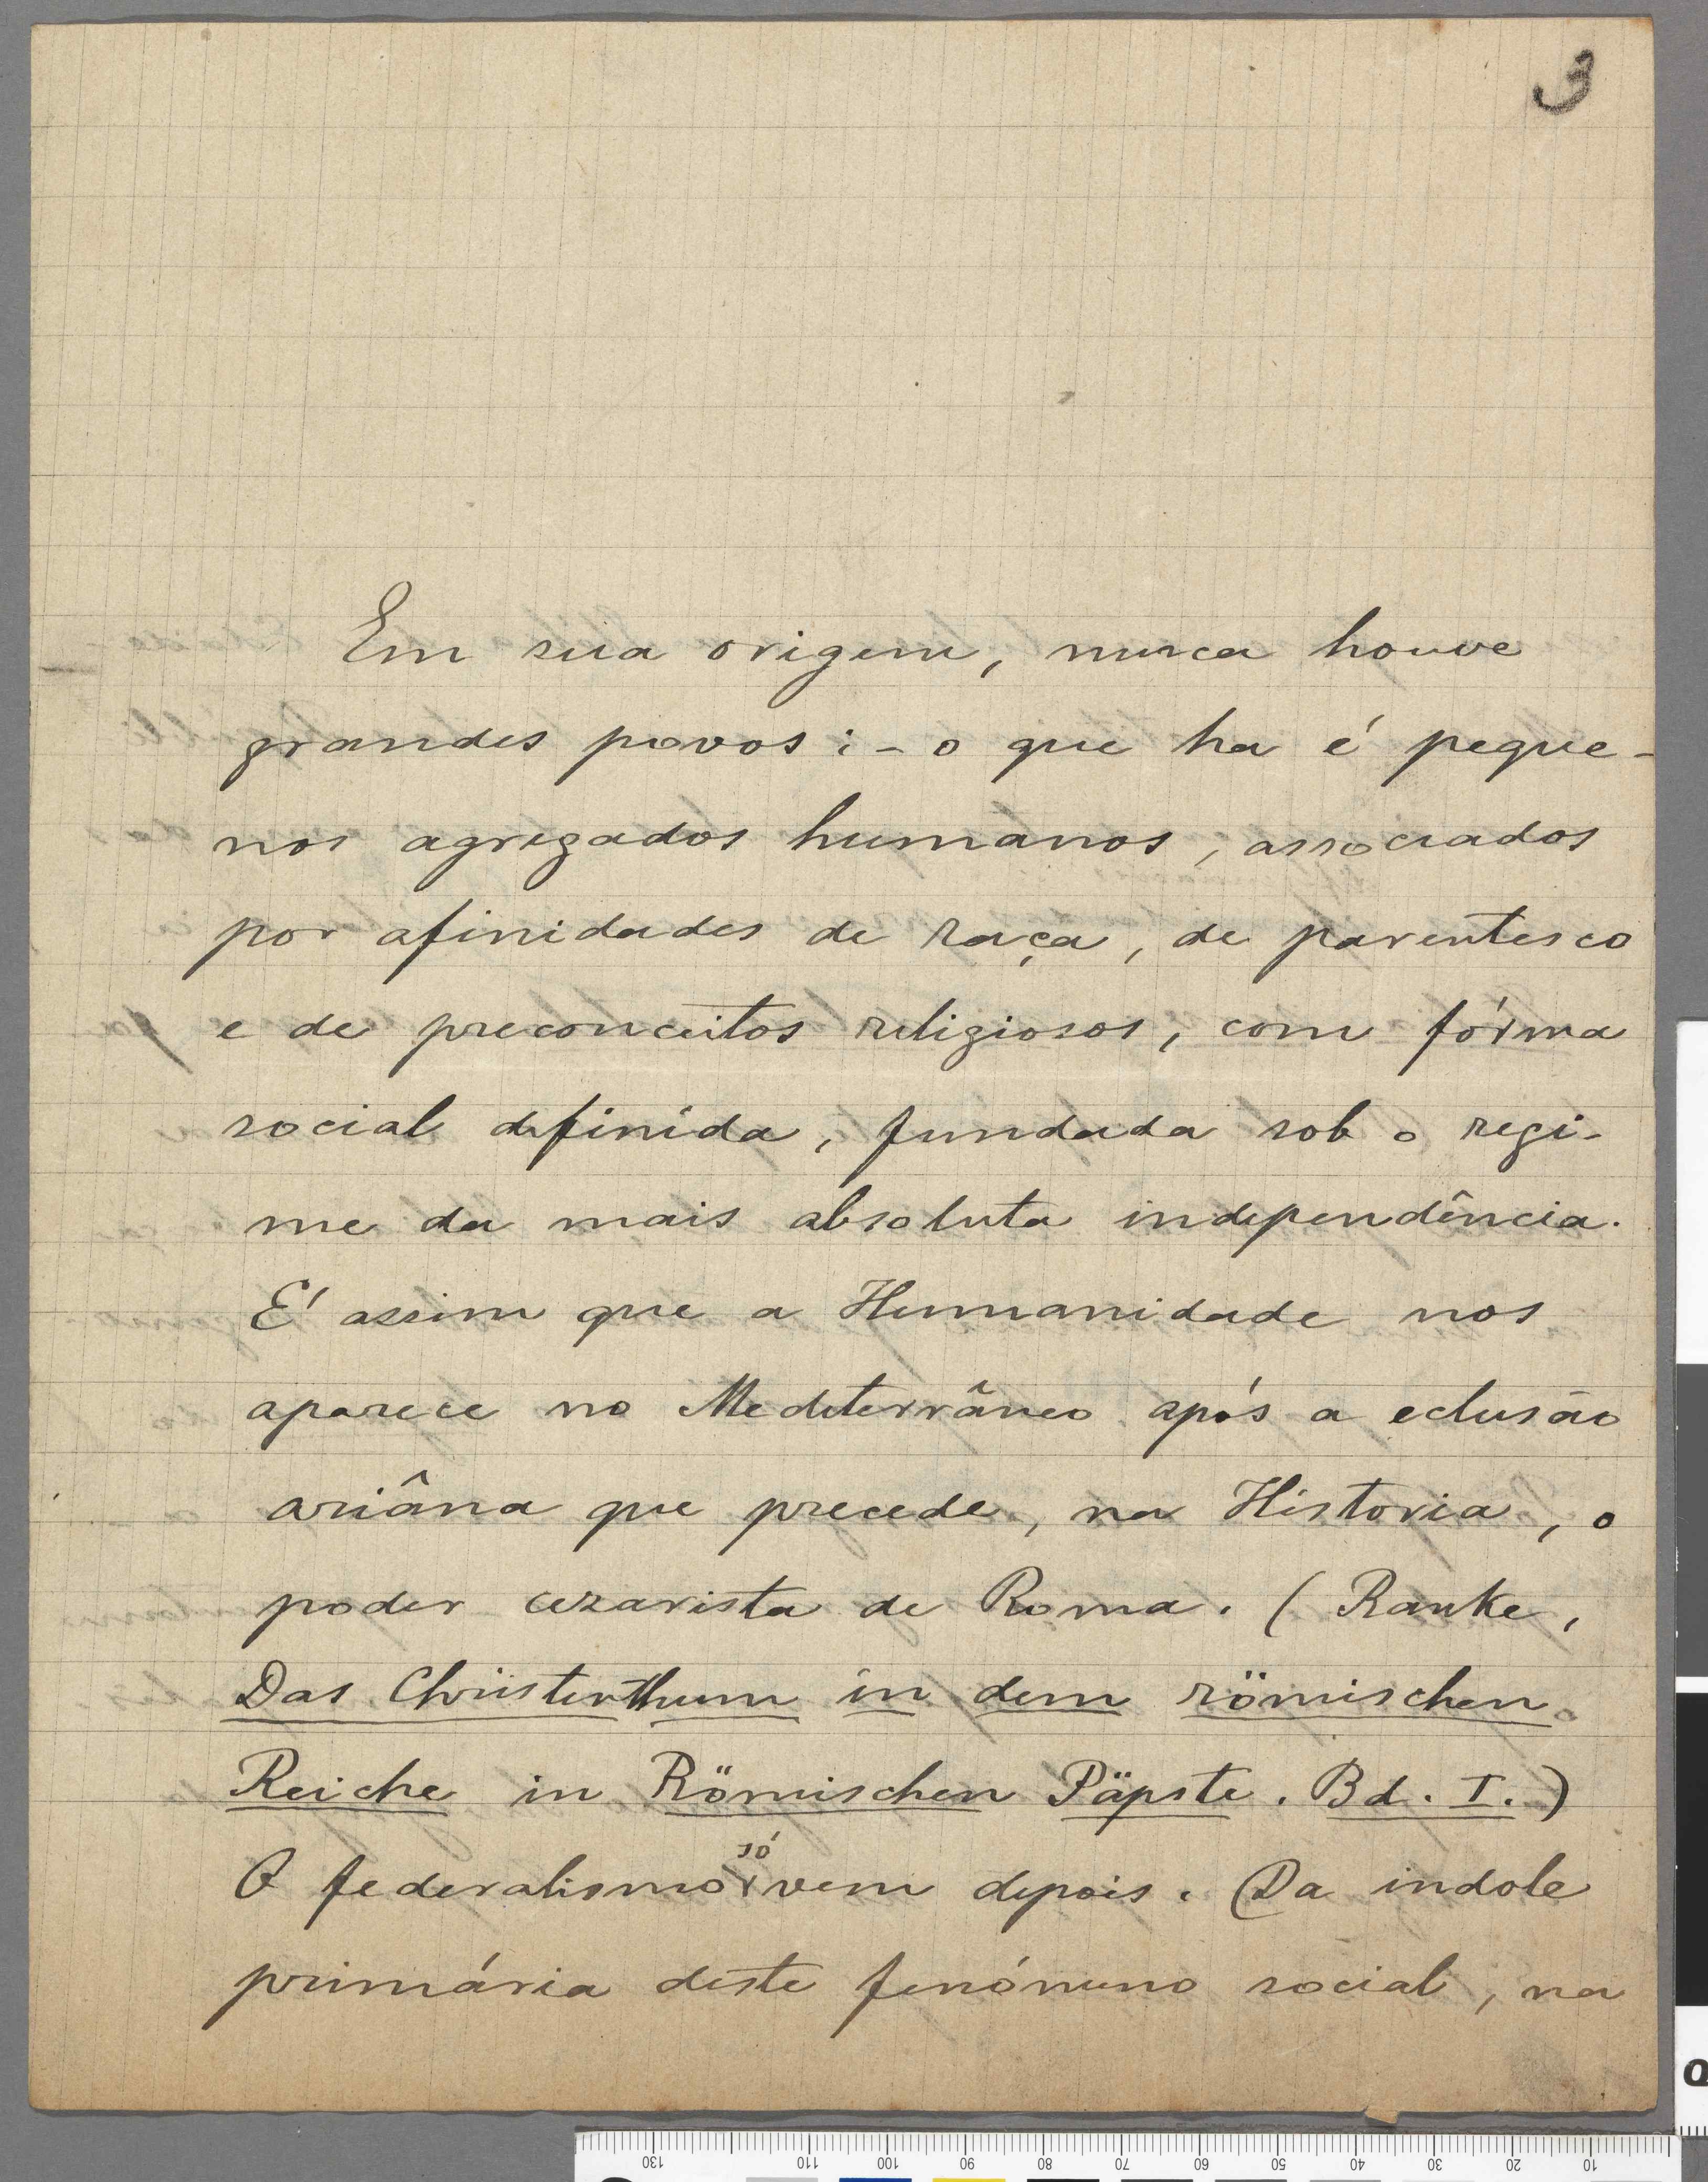 3
Em sua origem, nunca houve
grandes povos: - o que ha é peque-
nos agregados humanos, associados
por afinidades de raça, de parentesco
e de preconceitos religiosos, com fórma
social definida, fundada sob o regi-
me da mais absoluta independência.
E' assim que a Humanidade nos
aparece no Mediterrâneo após a eclusão
ariâna que precede, na Historia, o
poder cezarista de Roma. (Ranke,
Das Christerthum in dem römischen
Reiche in Römischen Päpste. Bd. I.)
O federalismo só vem depois. Da indole
primária deste fenómeno social, na
130 110 100 90 80 70 60 50 40 30 20 10